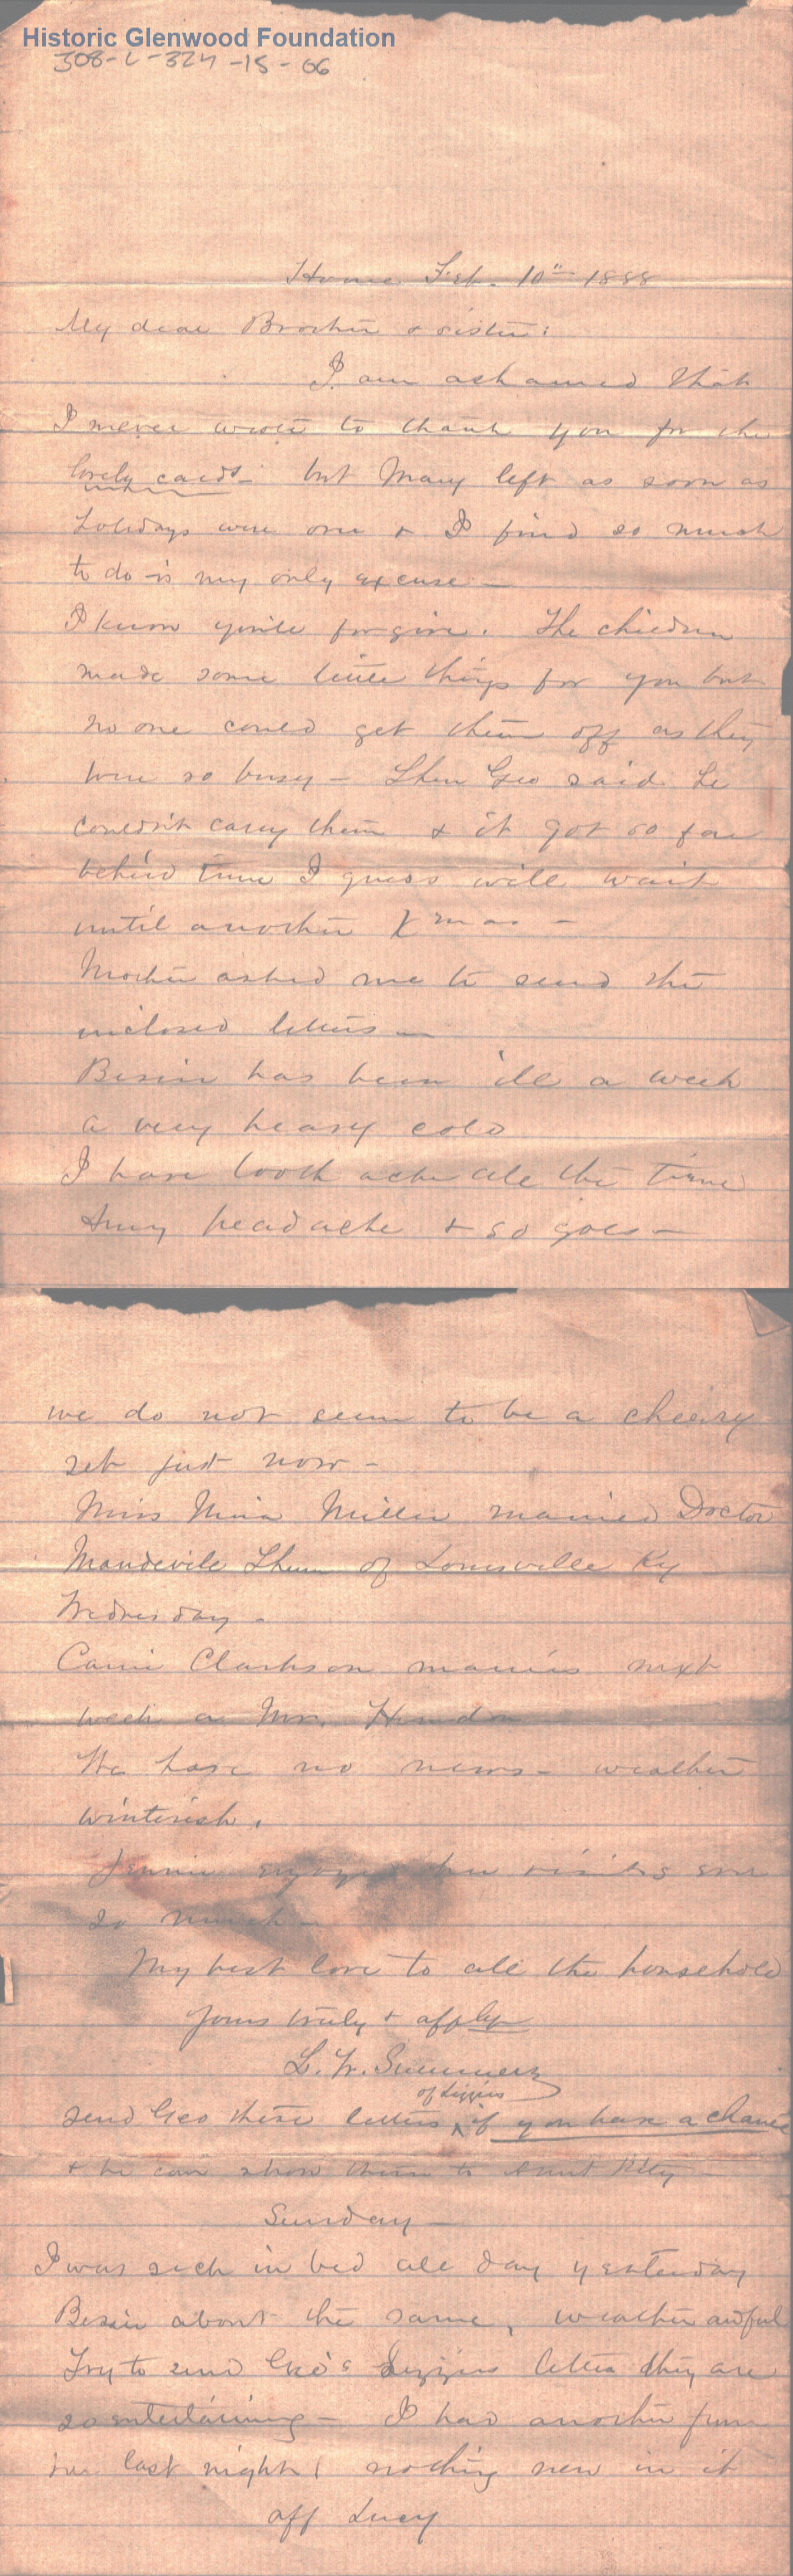 Historic Glenwood Foundation
308-L-324-15-06
Home Feb. 10th 1888
My dear Brother & sister:
I am ashamed that
I never wrote to thank you for the
lovely cards - but Mary left as soon as
holidays were over & I find so much
to do is my only excuse -
I know you'll forgive. The children
made some little things for you but
no one could get them off as they
were so busy - Then Geo said he
couldn't carry them & it got so far
behind time I guess will wait
until another Xmas -
Mother asked me to send the
inclosed letters -
Bessie has been ill a week
a very heavy cold
I have tooth ache all the time
headache & so goes -
we do not seem to be a cheery
set just now -
Miss Nina Miller married Doctor
Mandevile of Louisville Ky
Wednesday -
Carrie Clarkson marries next
week a Mr.
We have no news - weather
winterish.
Jennie enjoyed her visits ever
so much -
My best love to all the household
Yours truly & affly
L. W. Summers
of Lizzies
send Geo these letters ^ if you have a chance
& he can show them to Aunt
Sunday -
I was sick in bed all day yesterday
Bessie about the same, weather awful
Try to send Geo's Lizzies letter they are
so entertaining - I had another from
her last night, nothing new in it
aff Lucy